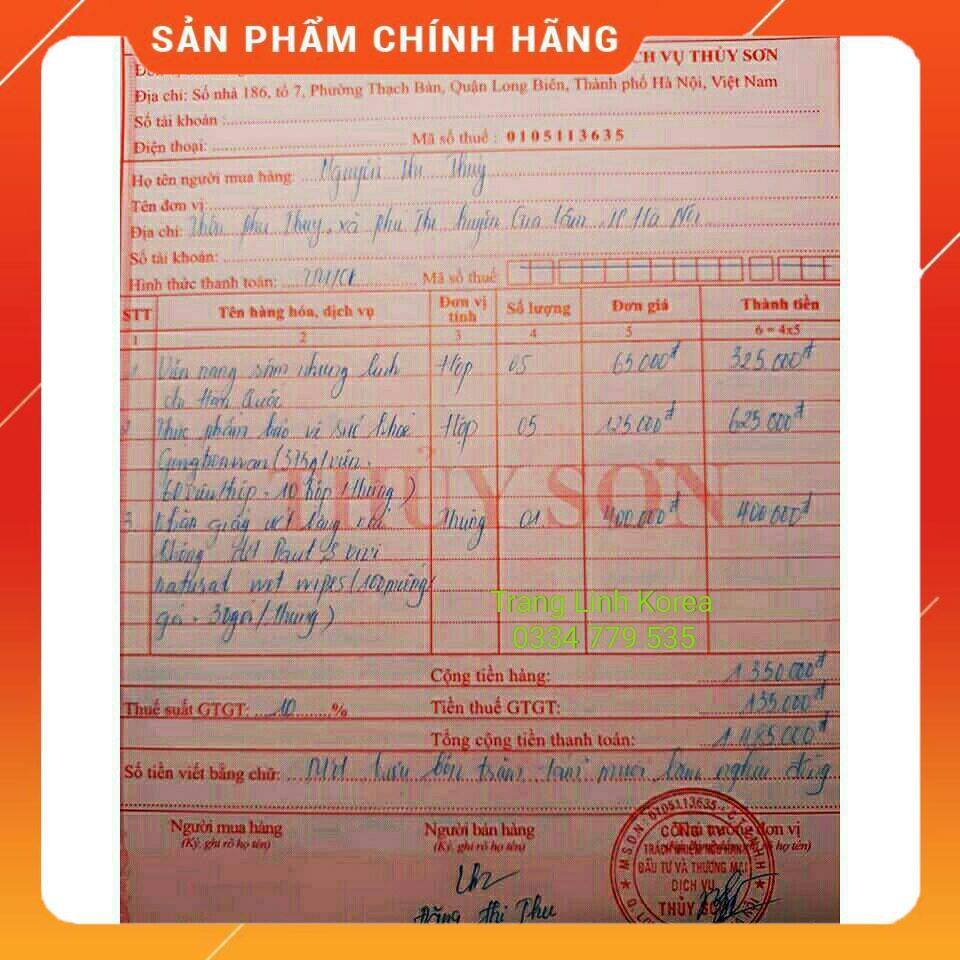 SẢN PHẨM CHÍNH HÃNG
CH VỤ THỦY SƠN
Địa chỉ: Số nhà 186, tổ 7, Phường Thạch Bàn, Quận Long Biên, Thành phố Hà Nội, Việt Nam
Số tài khoản :
Điện thoại: Mã số thuế : 0105113635
Họ tên người mua hàng: Nguyễn Thu Thuỷ
Tên đơn vị:
Địa chỉ: Thôn Phú Thụy, xã Phú Thị huyện Gia Lâm, TP Hà Nội
Số tài khoản:
Hình thức thanh toán: TM/CK Mã số thuế
STT Tên hàng hóa, dịch vụ Đơn vị tính Số lượng Đơn giá Thành tiền
1 2 3 4 5 6 = 4x5
1 sâm nhung linh Hộp 05 65.000đ 325.000đ
chi Hàn Quốc
2 Thực phẩm bảo vệ sức khỏe Hộp 05 125.000đ 625.000đ
60 viên/hộp - 10 hộp / thùng )
3 Khăn giấy ướt Thùng 01 400.000đ 400.000đ
không dệt
natural wet wipes (100 miếng/
gói - 30gói / thùng )
THỦY SƠN
Trang Linh Korea
0334 779 535
Cộng tiền hàng: 1 350.000đ
Thuế suất GTGT: 10 % Tiền thuế GTGT: 135.000đ
Tổng cộng tiền thanh toán: 1 485.000đ
Số tiền viết bằng chữ: Một triệu bốn trăm tám mươi lăm nghìn đồng
Người mua hàng Người bán hàng Thủ trưởng đơn vị
(Ký, ghi rõ họ tên) (Ký, ghi rõ họ tên)
Đặng Thị Thu
M.S.D.N: 0105113635 - C.T.T.N.H.H
CÔNG TY
TRÁCH NHIỆM HỮU HẠN
ĐẦU TƯ VÀ THƯƠNG MẠI
DỊCH VỤ
THỦY SƠN